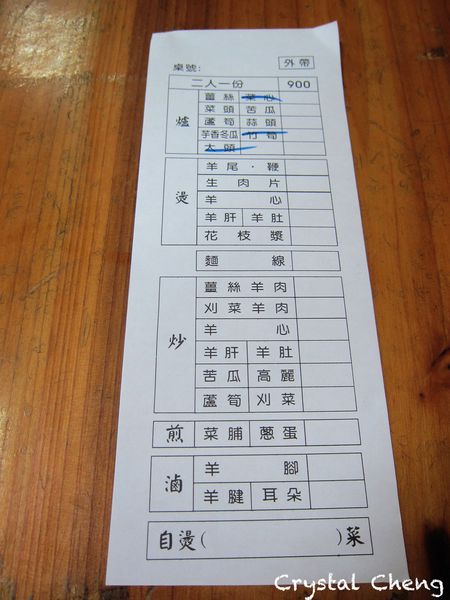 桌號: 外帶
二人一份 900
爐
薑絲 菜心
菜頭 苦瓜
蘆筍 蒜頭
芋香冬瓜 竹筍
大頭
燙
羊尾.鞭
生肉片
羊心
羊肝 羊肚
花枝漿
麵線
炒
薑絲羊肉
刈菜羊肉
羊心
羊肝 羊肚
苦瓜 高麗
蘆筍 刈菜
煎
菜脯 蔥蛋
滷
羊腳
羊腱 耳朵
自燙( )菜
Crystal Cheng